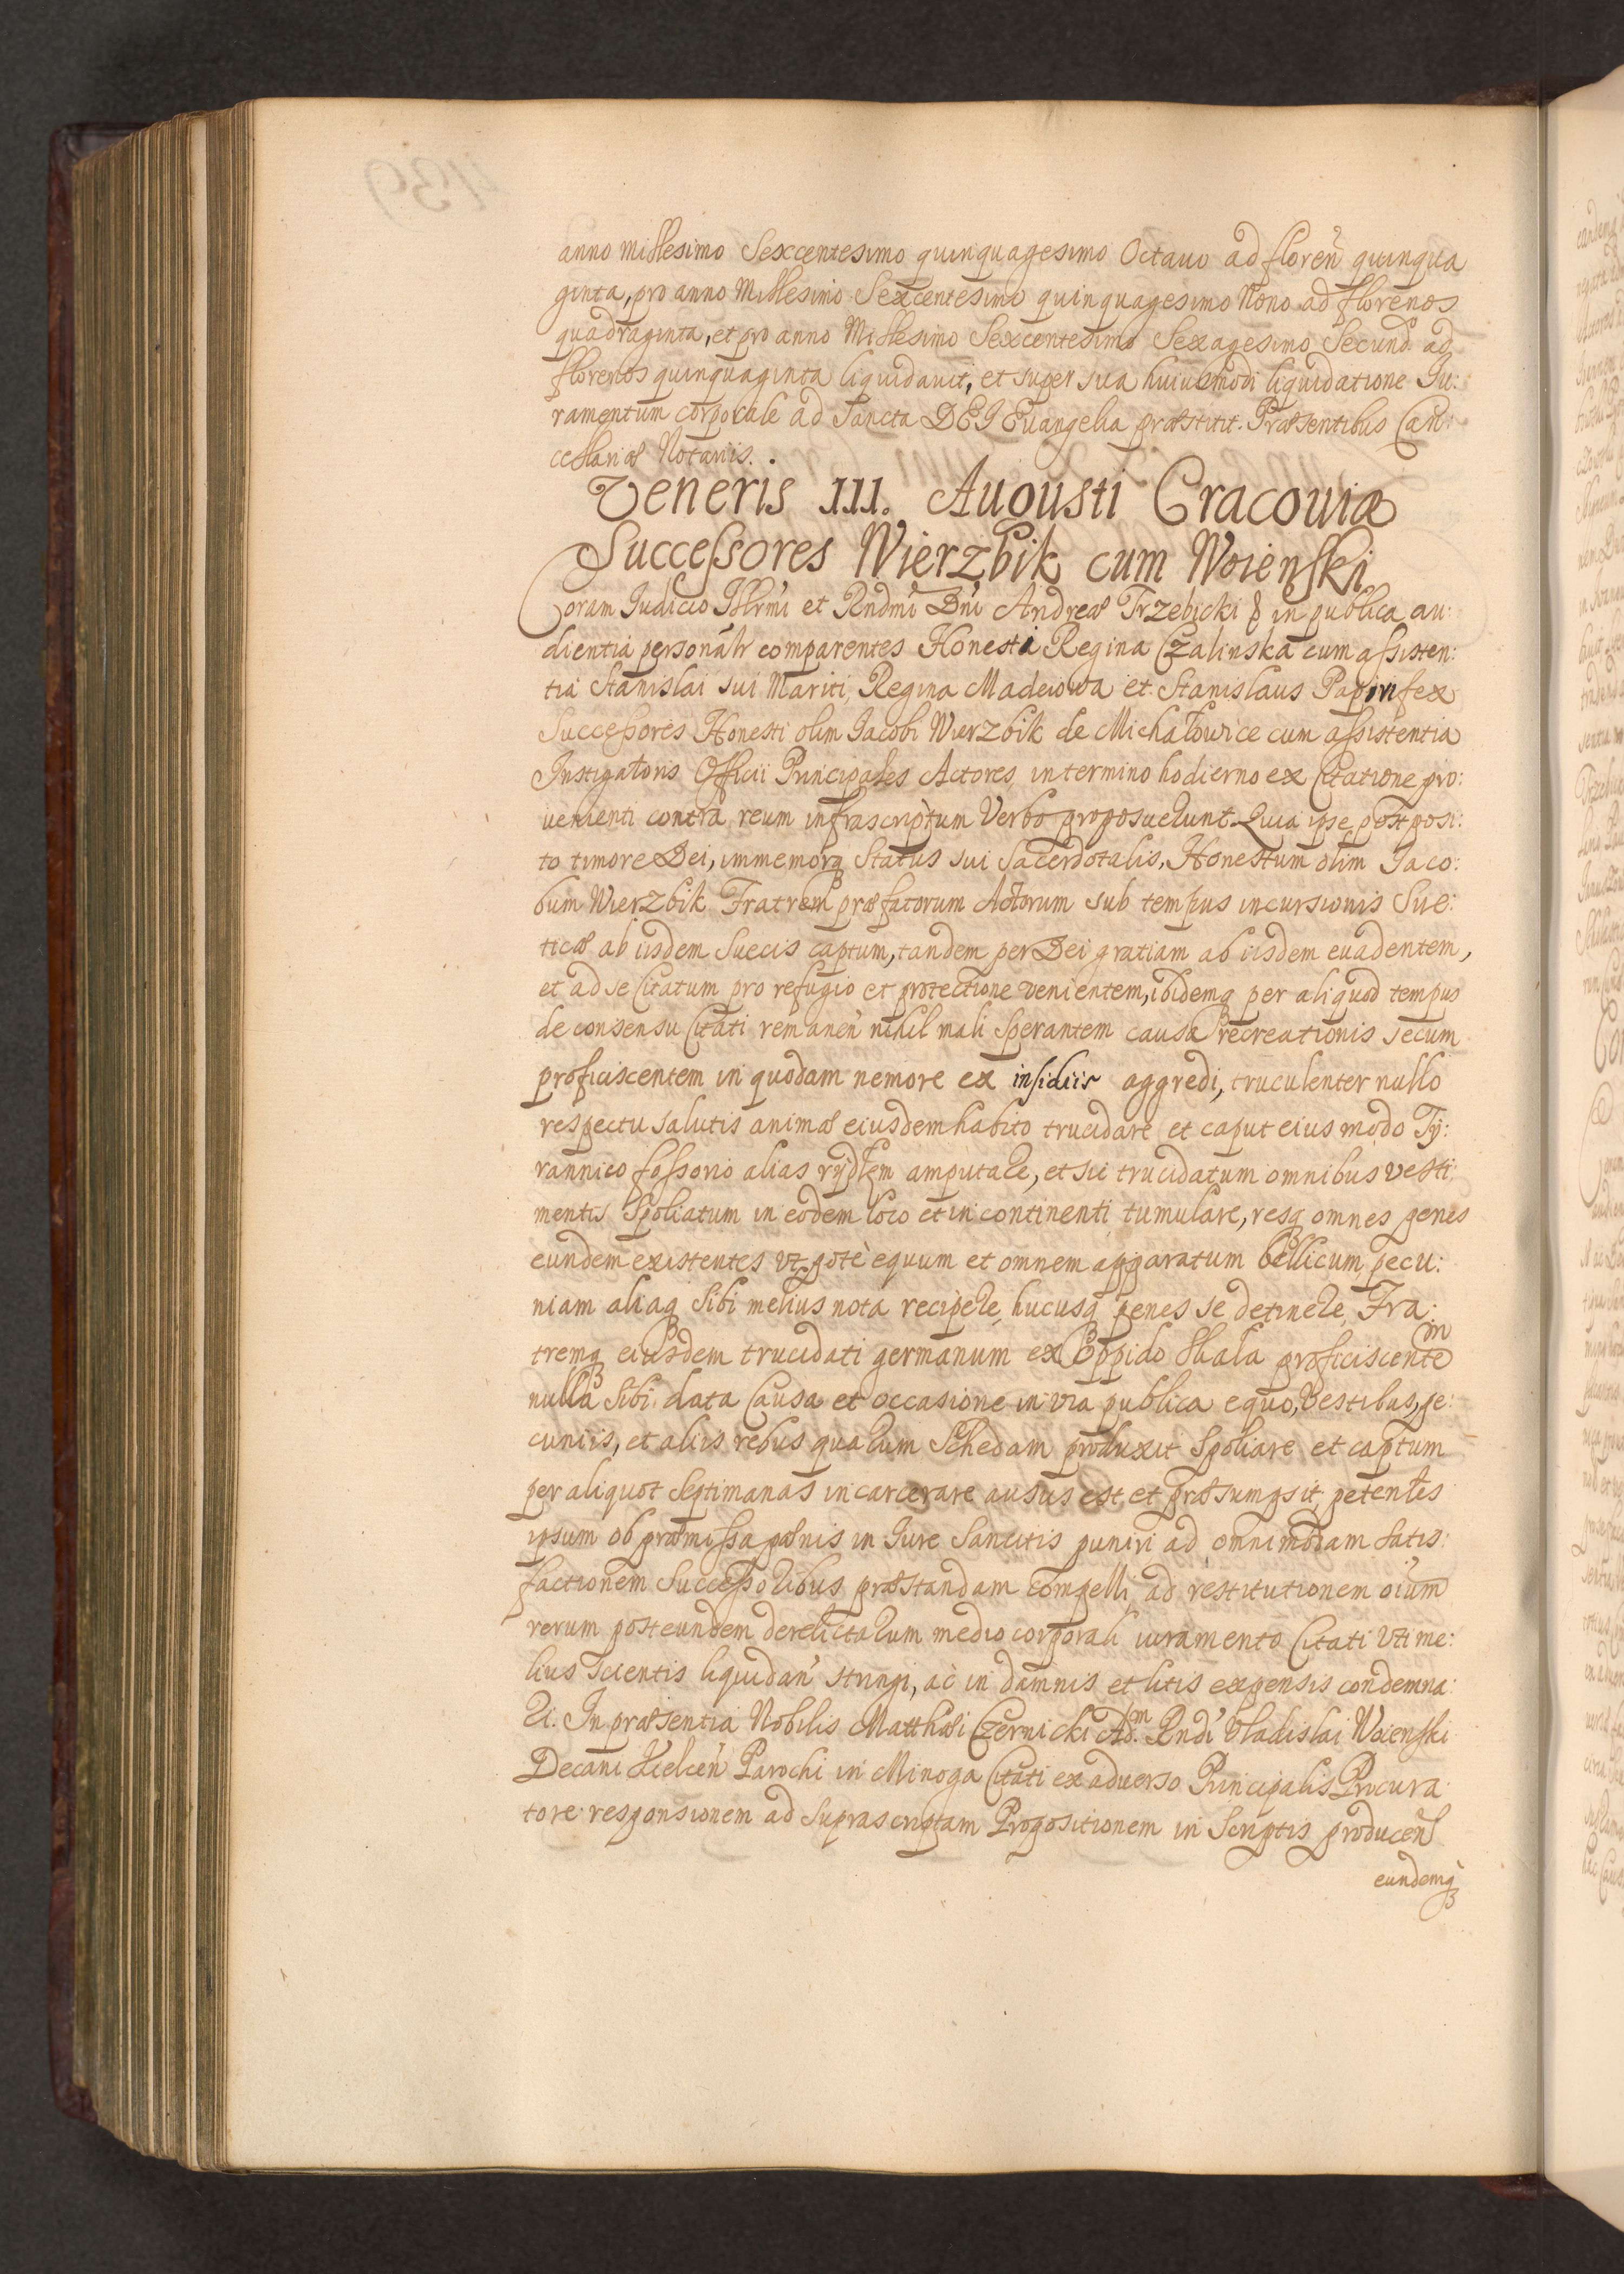 anno Millesimo Sexcentesimo quinquagesimo Octauo ad floren̄ quinqua
ginta, pro anno Millesimo Sexcentesimo quinquagesimo Nono ad florenos
quadraginta, et pro anno Millesimo Sexcentesimo Sexagesimo Secund. ad
florenos quinquaginta liquidauit, et super sua huiusmodi liquidatione Iu:
ramentum corporale ad Sancta DEI Euangelia præstitit. Præsentibus Can:
cellariæ Notariis.
Veneris III. Augusti Cracouiæ
Successores Wierzbik cum Woienski
Coram Iudicio Illrmi et Rndmi Dni Andreæ Trzebicki & in publica au:
dientia personalr comparentes Honesti Regina Czalinska cum assisten:
tia Stanislai sui Mariti, Regina Madeiowa et Stanislaus Papinifex
Successores Honesti olim Iacobi Wierzbik de Michałowice cum assistentia
Instigatoris Officii Principales Actores, in termino hodierno ex Citatione pro:
uenienti contra reum infrascriptum Verbo proposuerunt. Quia ipse post posi:
to timore Dei, immemorq Status sui Sacerdotalis, Honestum olim Iaco:
bum Wierzbik Fratrem præfatorum Actorum sub tempus incursionis Sue:
ticæ ab iisdem Suecis captum, tandem per Dei gratiam ab iisdem euadentem,
et ad se Citatum pro refugio et protectione venientem, ibidemq per aliquod tempus
de consensu Citati remanen̄ nihil mali Sperantem causa recreationis secum
proficiscentem in quodam nemore ex insidiis aggredi, truculenter nullo
respectu salutis animæ eiusdem habito trucidare et caput eius modo Ty:
rannico fossorio alias rydlem amputare, et sic trucidatum omnibus vesti:
mentis Spoliatum in eodem loco et in continenti tumulare, resq omnes penes
eundem existentes vt pote equum et omnem apparatum bellicum, pecu:
niam aliaq Sibi melius nota recipere, hucusq penes se detinere, Fra:
tremq eiusdem trucidati germanum ex Oppido Skala proficiscentem
nulla Sibi data Causa et occasione in via publica equo, Vestibus, pe:
cuniis, et aliis rebus quarum Schedam produxit Spoliare et captum
per aliquot Septimanas incarcerare ausus est et præsumpsit, petentes
ipsum ob præmissa pœnis in Iure Sancitis puniri ad omnimodam Satis:
factionem Successoribus præstandam compelli, ad restitutionem oium
rerum post eundem derelictarum medio corporali iuramento Citati Vti me:
lius scientis liquidan̄ stringi, ac in damnis et litis expensis condemna:
ri. In præsentia Nobilis Matthæi Czernicki Adm. Rndi Vladislai Woienski
Decani Kielcen̄ Parochi in Minoga Citati ex aduerso Principalis Procura:
tore responsionem ad Suprascriptam Propositionem in Scriptis producen̄
eundemq